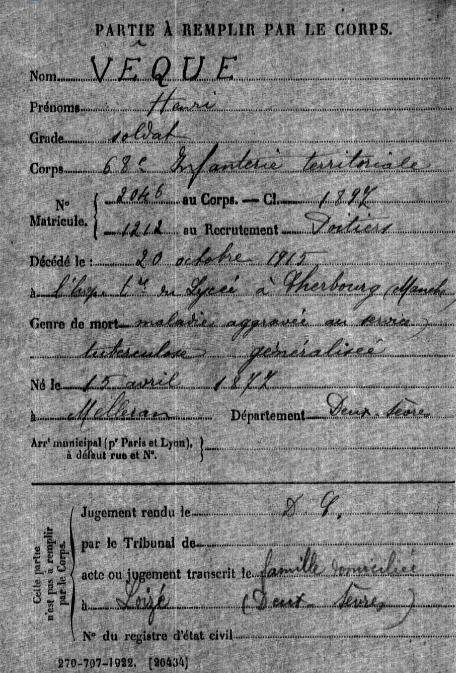 PARTIE À REMPLIR PAR LE CORPS.
Nom VÊQUE
Prénoms Henri
Grade soldat
Corps 68e Infanterie territoriale
N° Matricule. { 2046 au Corps. — Cl. 1897
1212 au Recrutement Poitiers
Décédé le : 20 octobre 1915
à l'hop. tre du Lycée à Cherbourg (Manche)
Genre de mort maladie aggravée au service
tuberculose généralisée
Né le 15 avril 1877
à Melleran Département Deux-Sèvres
Arrt municipal (pr Paris et Lyon), à défaut rue et N°. }
Cette partie n'est pas à remplir par le Corps.
Jugement rendu le D. C.
par le Tribunal de
acte ou jugement transcrit le famille domiciliée
à Loizé (Deux-Sèvres)
N° du registre d'état civil
270-707-1922. [26434]